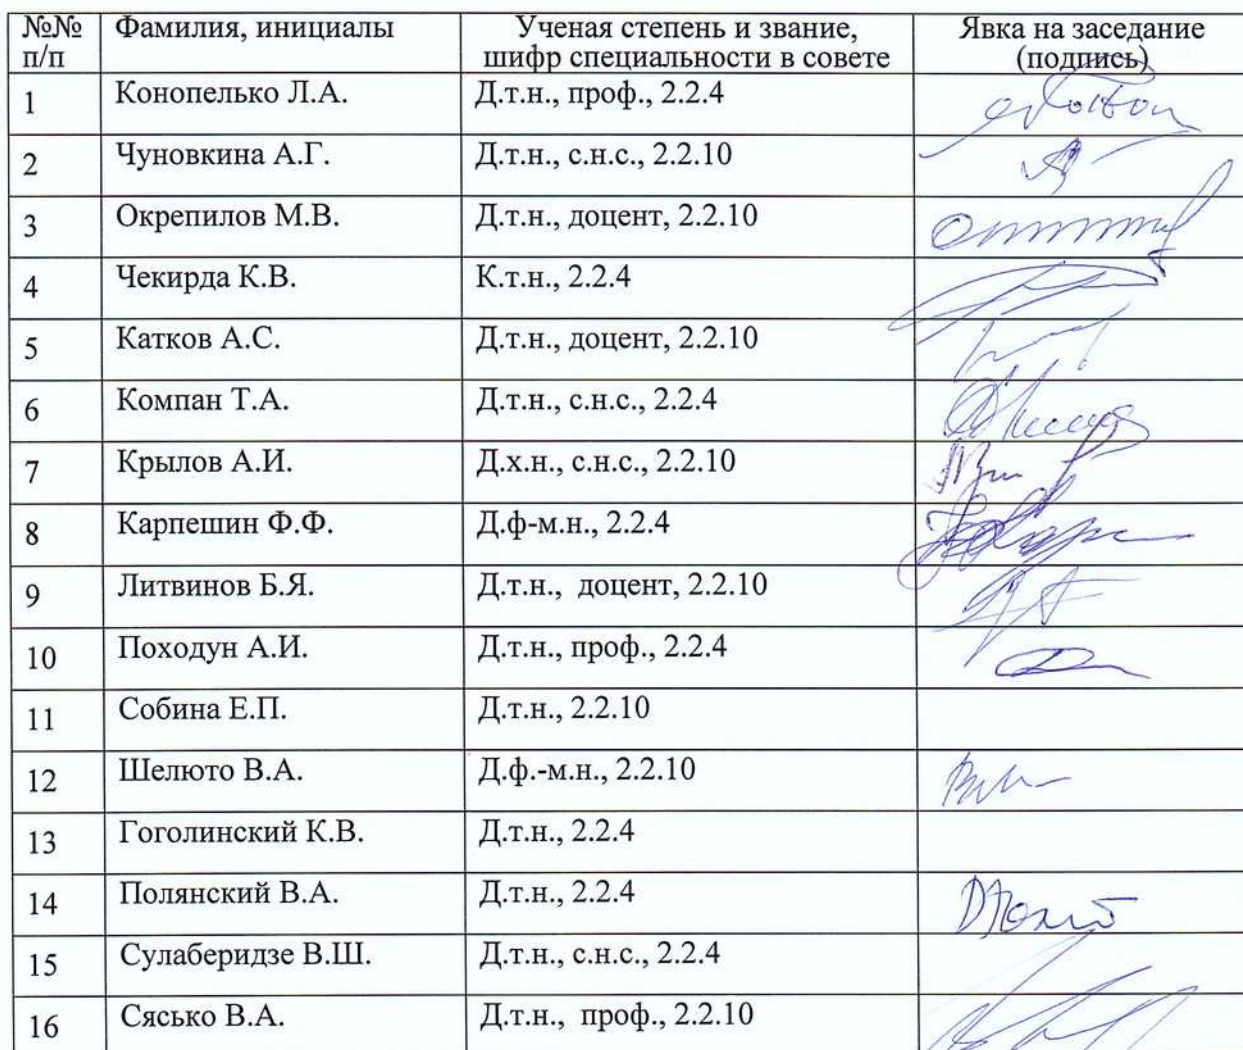 №№ п/п Фамилия, инициалы Ученая степень и звание, шифр специальности в совете Явка на заседание (подпись)
1 Конопелько Л.А. Д.т.н., проф., 2.2.4
2 Чуновкина А.Г. Д.т.н., с.н.с., 2.2.10
3 Окрепилов М.В. Д.т.н., доцент, 2.2.10
4 Чекирда К.В. К.т.н., 2.2.4
5 Катков А.С. Д.т.н., доцент, 2.2.10
6 Компан Т.А. Д.т.н., с.н.с., 2.2.4
7 Крылов А.И. Д.х.н., с.н.с., 2.2.10
8 Карпешин Ф.Ф. Д.ф-м.н., 2.2.4
9 Литвинов Б.Я. Д.т.н., доцент, 2.2.10
10 Походун А.И. Д.т.н., проф., 2.2.4
11 Собина Е.П. Д.т.н., 2.2.10
12 Шелюто В.А. Д.ф.-м.н., 2.2.10
13 Гоголинский К.В. Д.т.н., 2.2.4
14 Полянский В.А. Д.т.н., 2.2.4
15 Сулаберидзе В.Ш. Д.т.н., с.н.с., 2.2.4
16 Сясько В.А. Д.т.н., проф., 2.2.10